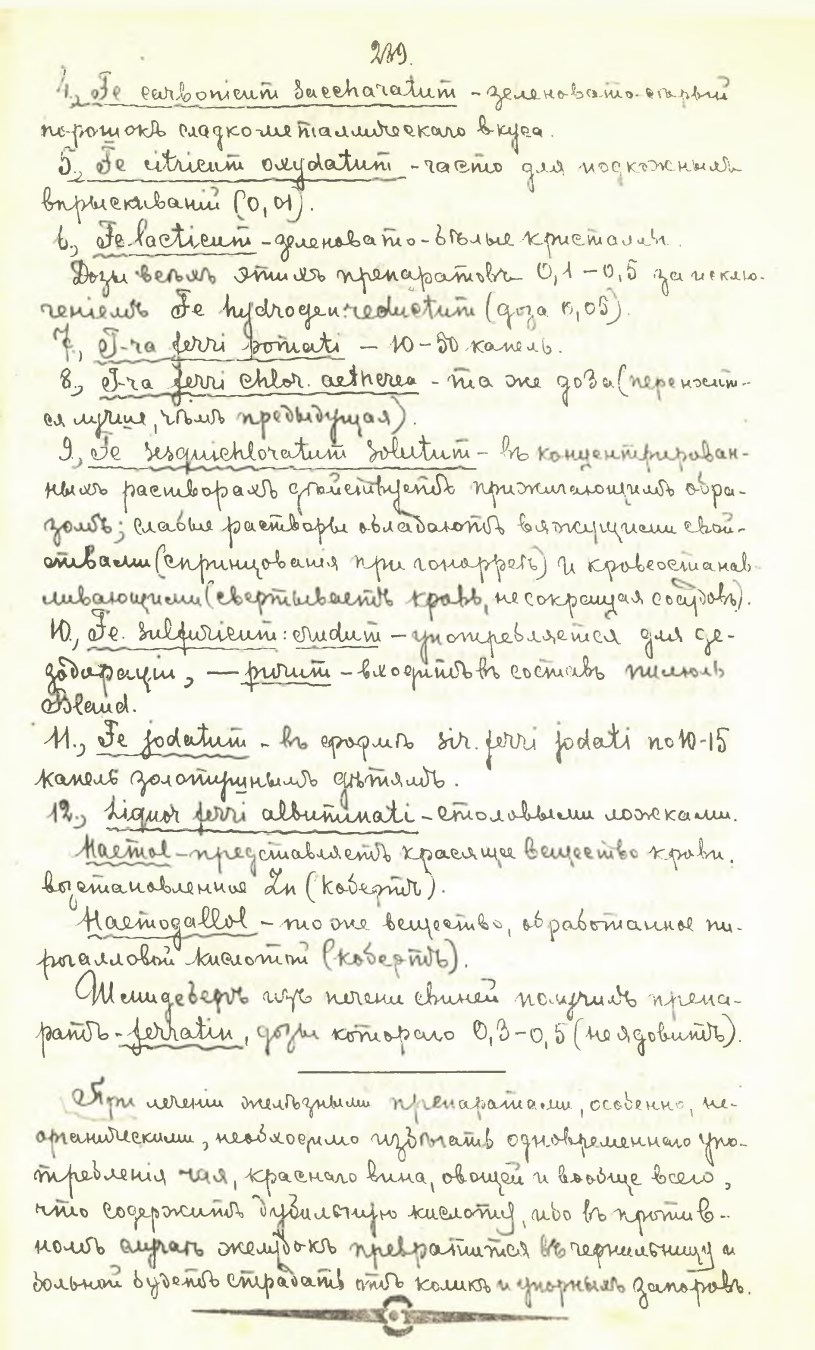 239.
4., Fe carbonicum saccharatum - зеленовато-сѣрый
порошокъ сладко-металлическаго вкуса.
5., Fe citricum oxydatum - часто для подкожныхъ
впрыскиваній (0,01).
6., Fe lacticum - зеленовато-бѣлые кристаллы.
Дозы всѣхъ этихъ препаратовъ 0,1-0,5 за исклю-
ченіемъ Fe hydrogen: reductum (доза 0,05).
7., T-ra ferri pomati - 10-50 капель.
8., T-ra ferri chlor. aetherea - та же доза (переносит-
ся лучше, чѣмъ предыдущая).
9., Fe sesquichloratum solutum - въ концентрирован-
ныхъ растворахъ дѣйствуетъ прижигающимъ обра-
зомъ; слабые растворы обладаютъ вяжущими свой-
ствами (спринцованія при гонорреѣ) и кровеостанав-
ливающими (свертываетъ кровь, не сокращая сосудовъ).
10., Fe. sulfuricum: crudum - употребляется для де-
зодораціи, — purum - входитъ въ составъ пилюль
Blaud.
11., Fe jodatum - въ формѣ sir. ferri jodati по 10-15
капель золотушнымъ дѣтямъ.
12., Liquor ferri albuminati - столовыми ложками.
Haemol - представляетъ красящее вещество крови,
возстановленное Zn (Кобертъ).
Haemogallol - тоже вещество, обработанное пи-
рогалловой кислотой (Кобертъ).
Шмидебергъ изъ печени свиней получилъ препа-
ратъ - ferratin, дозы котораго 0,3-0,5 (не ядовитъ).
При леченіи желѣзными препаратами, особенно, не-
органическими, необходимо избѣгать одновременнаго упо-
требленія чая, краснаго вина, овощей и вообще всего,
что содержитъ дубильную кислоту, ибо въ против-
номъ случаѣ желудокъ превратится въ чернильницу и
больной будетъ страдать отъ коликъ и упорныхъ запоровъ.